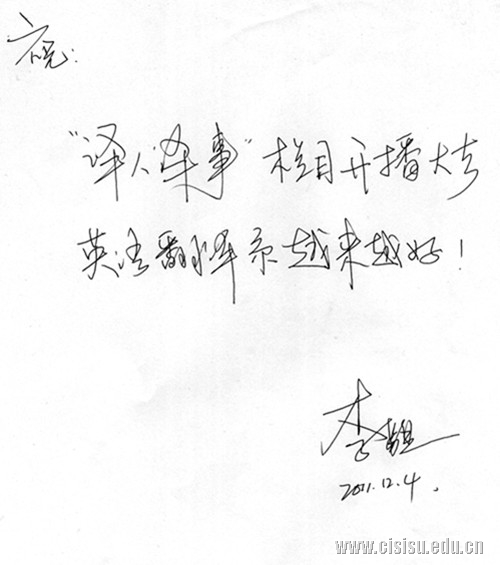 "译人译事"栏目开播大吉
英语翻译系越来越好！
李
2011.12.4.
www.cisisu.edu.cn